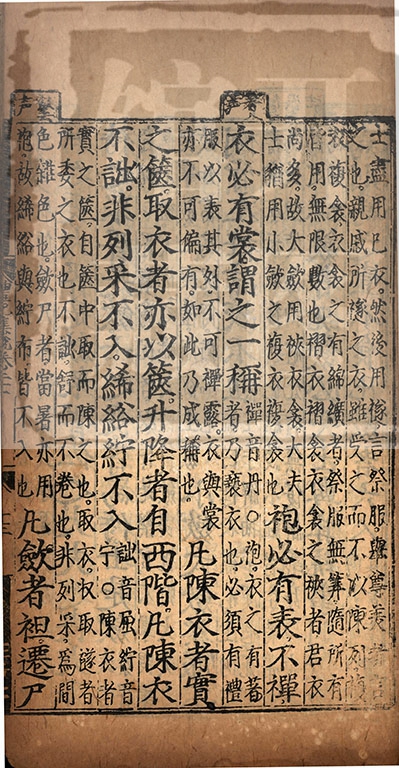 士盡用己衣然後用襚言祭服舉尊美者言
之也親戚所襚之衣雖受之而不以陳列複
衣複衾衣衾之有綿纊者祭服無筭隨所有
皆用無限數也褶衣褶衾衣衾之裌者君衣
尚多故大斂用裌衣衾大夫
士猶用小斂之複衣複衾也
袍必有表不襌
衣必有裳謂之一稱
襌音丹○袍衣之有著
者乃褻衣也必須有禮
服以表其外不可襌露衣與裳
亦不可偏有如此乃成稱也
凡陳衣者實
之篋取衣者亦以篋升降者自西階凡陳衣
不詘非列采不入絺綌紵不入
詘音屈紵音
宁○陳衣者
實之篋自篋中取而陳之也取衣収取襚者
所委之衣也不詘舒而不卷也非列采爲間
色雜色也斂尸者當暑亦用
袍故絺綌與紵布皆不入也
凡斂者袒遷尸